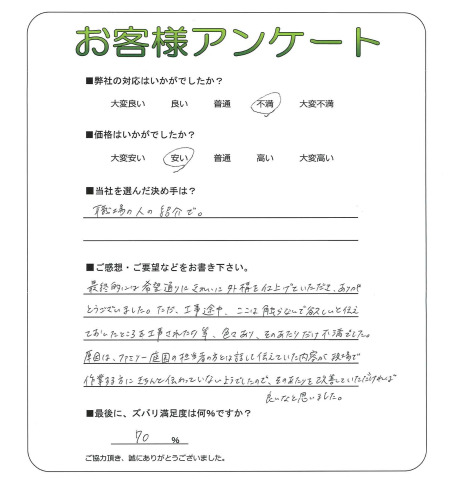 お客様アンケート
■弊社の対応はいかがでしたか？
大変良い 良い 普通 不満 大変不満
■価格はいかがでしたか？
大変安い 安い 普通 高い 大変高い
■当社を選んだ決め手は？
職場の人の紹介で。
■ご感想・ご要望などをお書き下さい。
最終的には希望通りにきれいに外構を仕上げていただき、ありが
とうございました。ただ、工事途中、ここは触らないで欲しいと伝え
ておいたところを工事されたり等、色々あり、そのあたりだけ不満でした。
原因は、ファミリー庭園の担当者の方とは話して伝えていた内容が現場で
作業する方にきちんと伝わっていないようでしたので、そのあたりを改善していただければ
良いなと思いました。
■最後に、ズバリ満足度は何%ですか？
70 %
ご協力頂き、誠にありがとうございました。